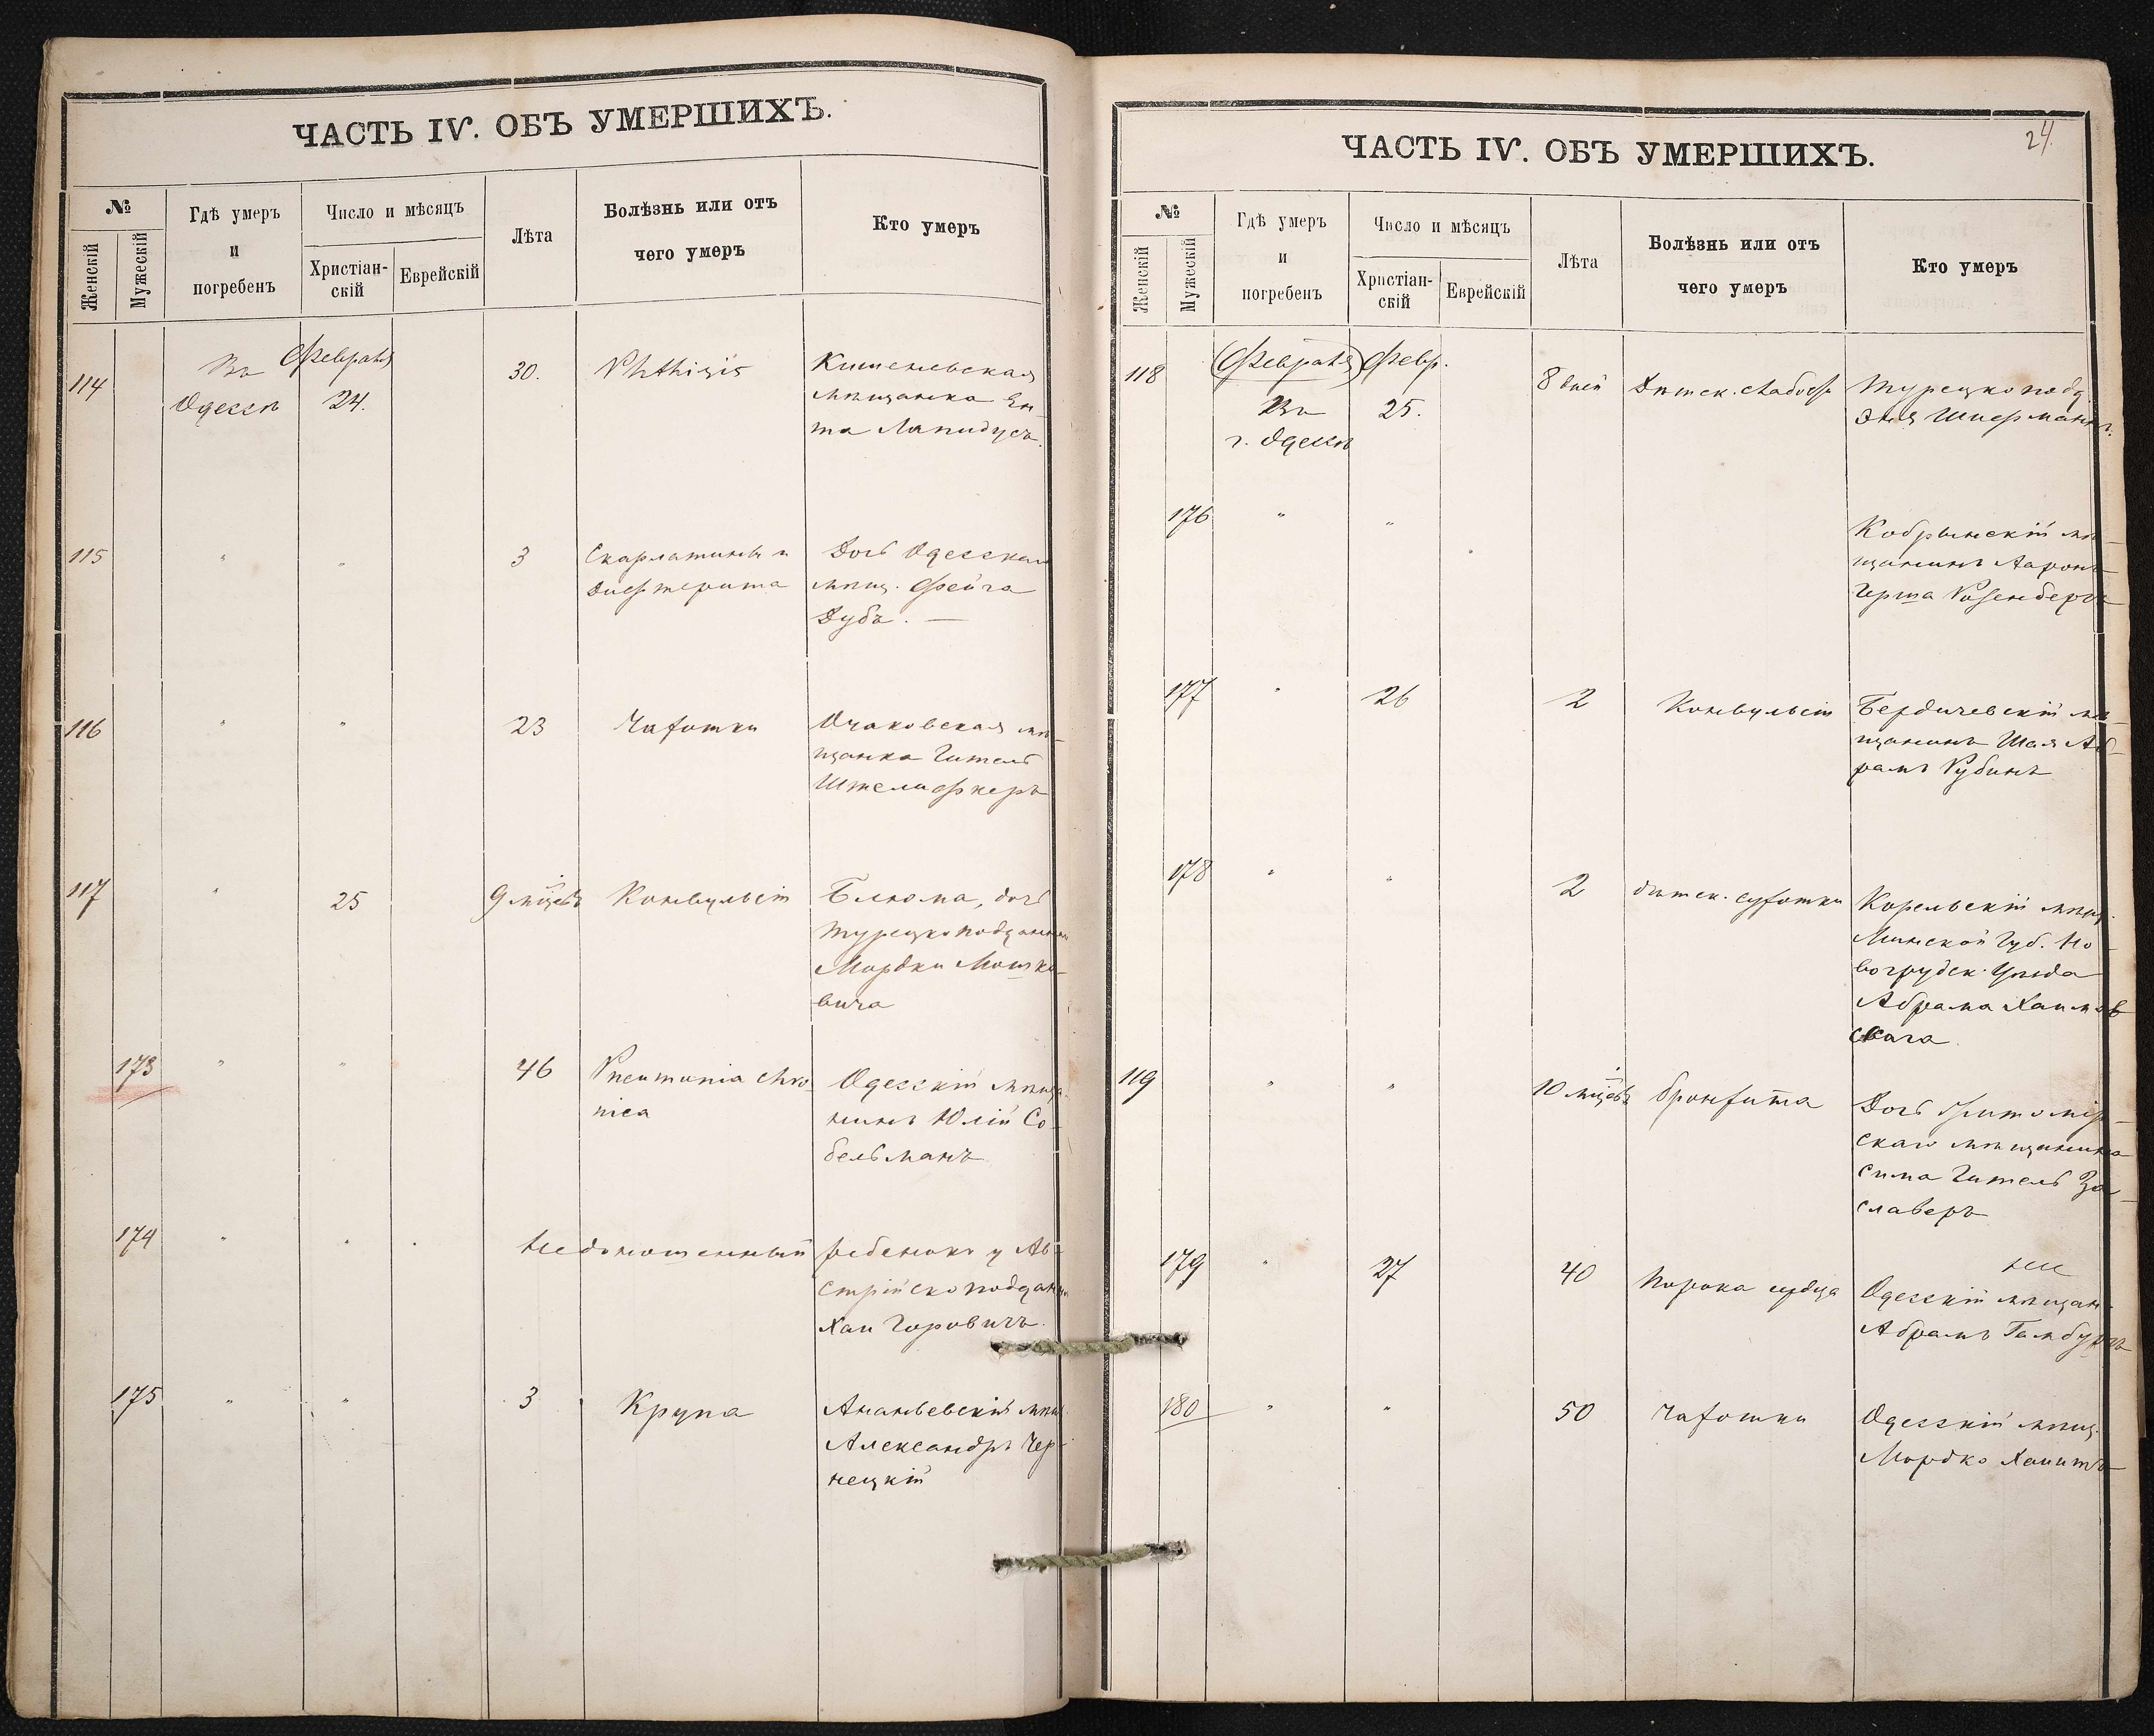 ЧАСТЬ IV. ОБЪ УМЕРШИХЪ.
№
Женскій
Мужескій
Гдѣ умеръ
и
погребенъ
Число и мѣсяцъ
Христіан-
скій
Еврейскій
Лѣта
Болѣзнь или отъ
чего умеръ
Кто умеръ
114
Въ
Одессѣ
Февраля
24.
30.
Phthisis
Кишеневская
мѣщанка Ен-
та Лапидусъ.
115
"
"
3
Скарлатины и
дифтерита
Дочь Одесскаго
мѣщ. Фейга
Дубъ. —
116
"
"
23
Чахотки
Очаковская мѣ-
щанка Гитель
Штелифкеръ
117
"
25
9 мѣсяцъ
Конвульсіи
Блюма, дочь
Турецкоподданнаго
Мордки Мошко-
вича
173
"
"
46
Pneumonia chro-
nica
Одесскій мѣща-
нинъ Юлій Со-
бельманъ
174
"
"
Недоношенный ребенокъ у Ав-
стрійскоподдан.
Хаи Горовичъ.
175
"
"
3
Крупа
Ананьевскій мѣщ.
Александръ Чер-
нецкій
24.
ЧАСТЬ IV. ОБЪ УМЕРШИХЪ.
№
Женскій
Мужескій
Гдѣ умеръ
и
погребенъ
Число и мѣсяцъ
Христіан-
скій
Еврейскій
Лѣта
Болѣзнь или отъ
чего умеръ
Кто умеръ
118
(Февраля)
Въ
г. Одессѣ
Февр.
25.
8 дней
Дѣтск. слабост.
Турецкоподд.
Эня Шифманъ.
176
"
"
Кобрынскій мѣ-
щанинъ Аронъ
Герша Розенбергъ
177
"
26
2
Конвульсіи
Бердичевскій мѣ-
щанинъ Шая Аб-
рамъ Рубинъ
178
"
"
2
дѣтск. сухотки
Корельскій мѣщ.
Минской Губ. Но-
вогрудск. Уѣзда
Абрама Хаимов
119
"
"
10 мѣсяцъ
бронхита
Дочь Житомір-
скаго мѣщанина
Сима Гитель За-
славеръ
179
"
27
40
порока сердца
нин
Одесскій мѣщан-
Абрамъ Гамбургъ
180
"
"
50
Чахотки
Одесскій мѣщ.
Мордко Хаитъ